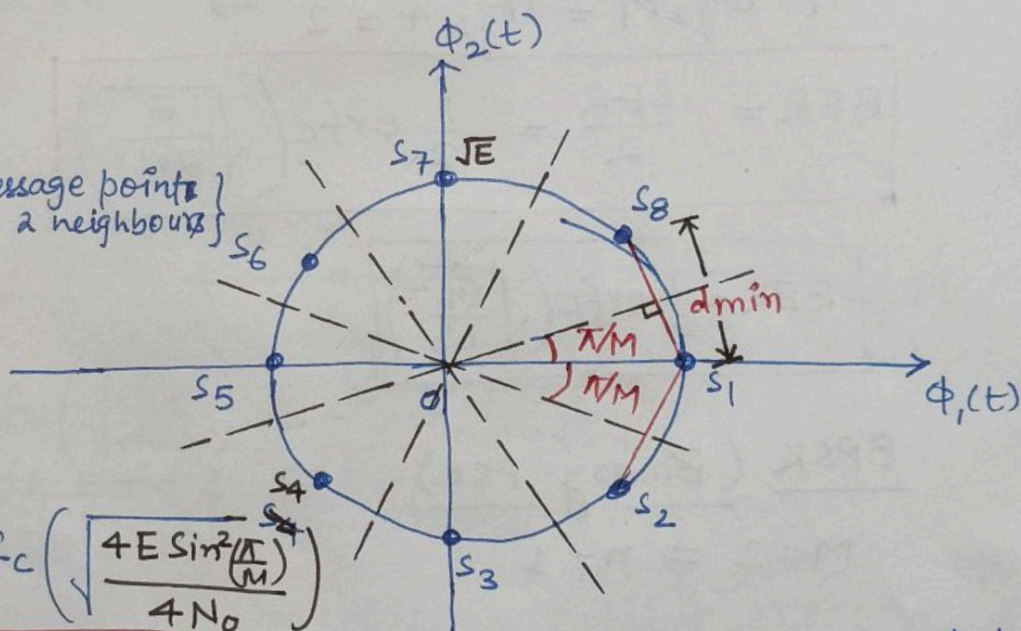 ϕ₂(t)
S7 √E
message points }
2 neighbours }
S8
S6
dmin
π/M
π/M
S5
O
S1
ϕ₁(t)
S4
S2
c ( √( 4E Sin²(π/M) / 4N₀ ) )
S3